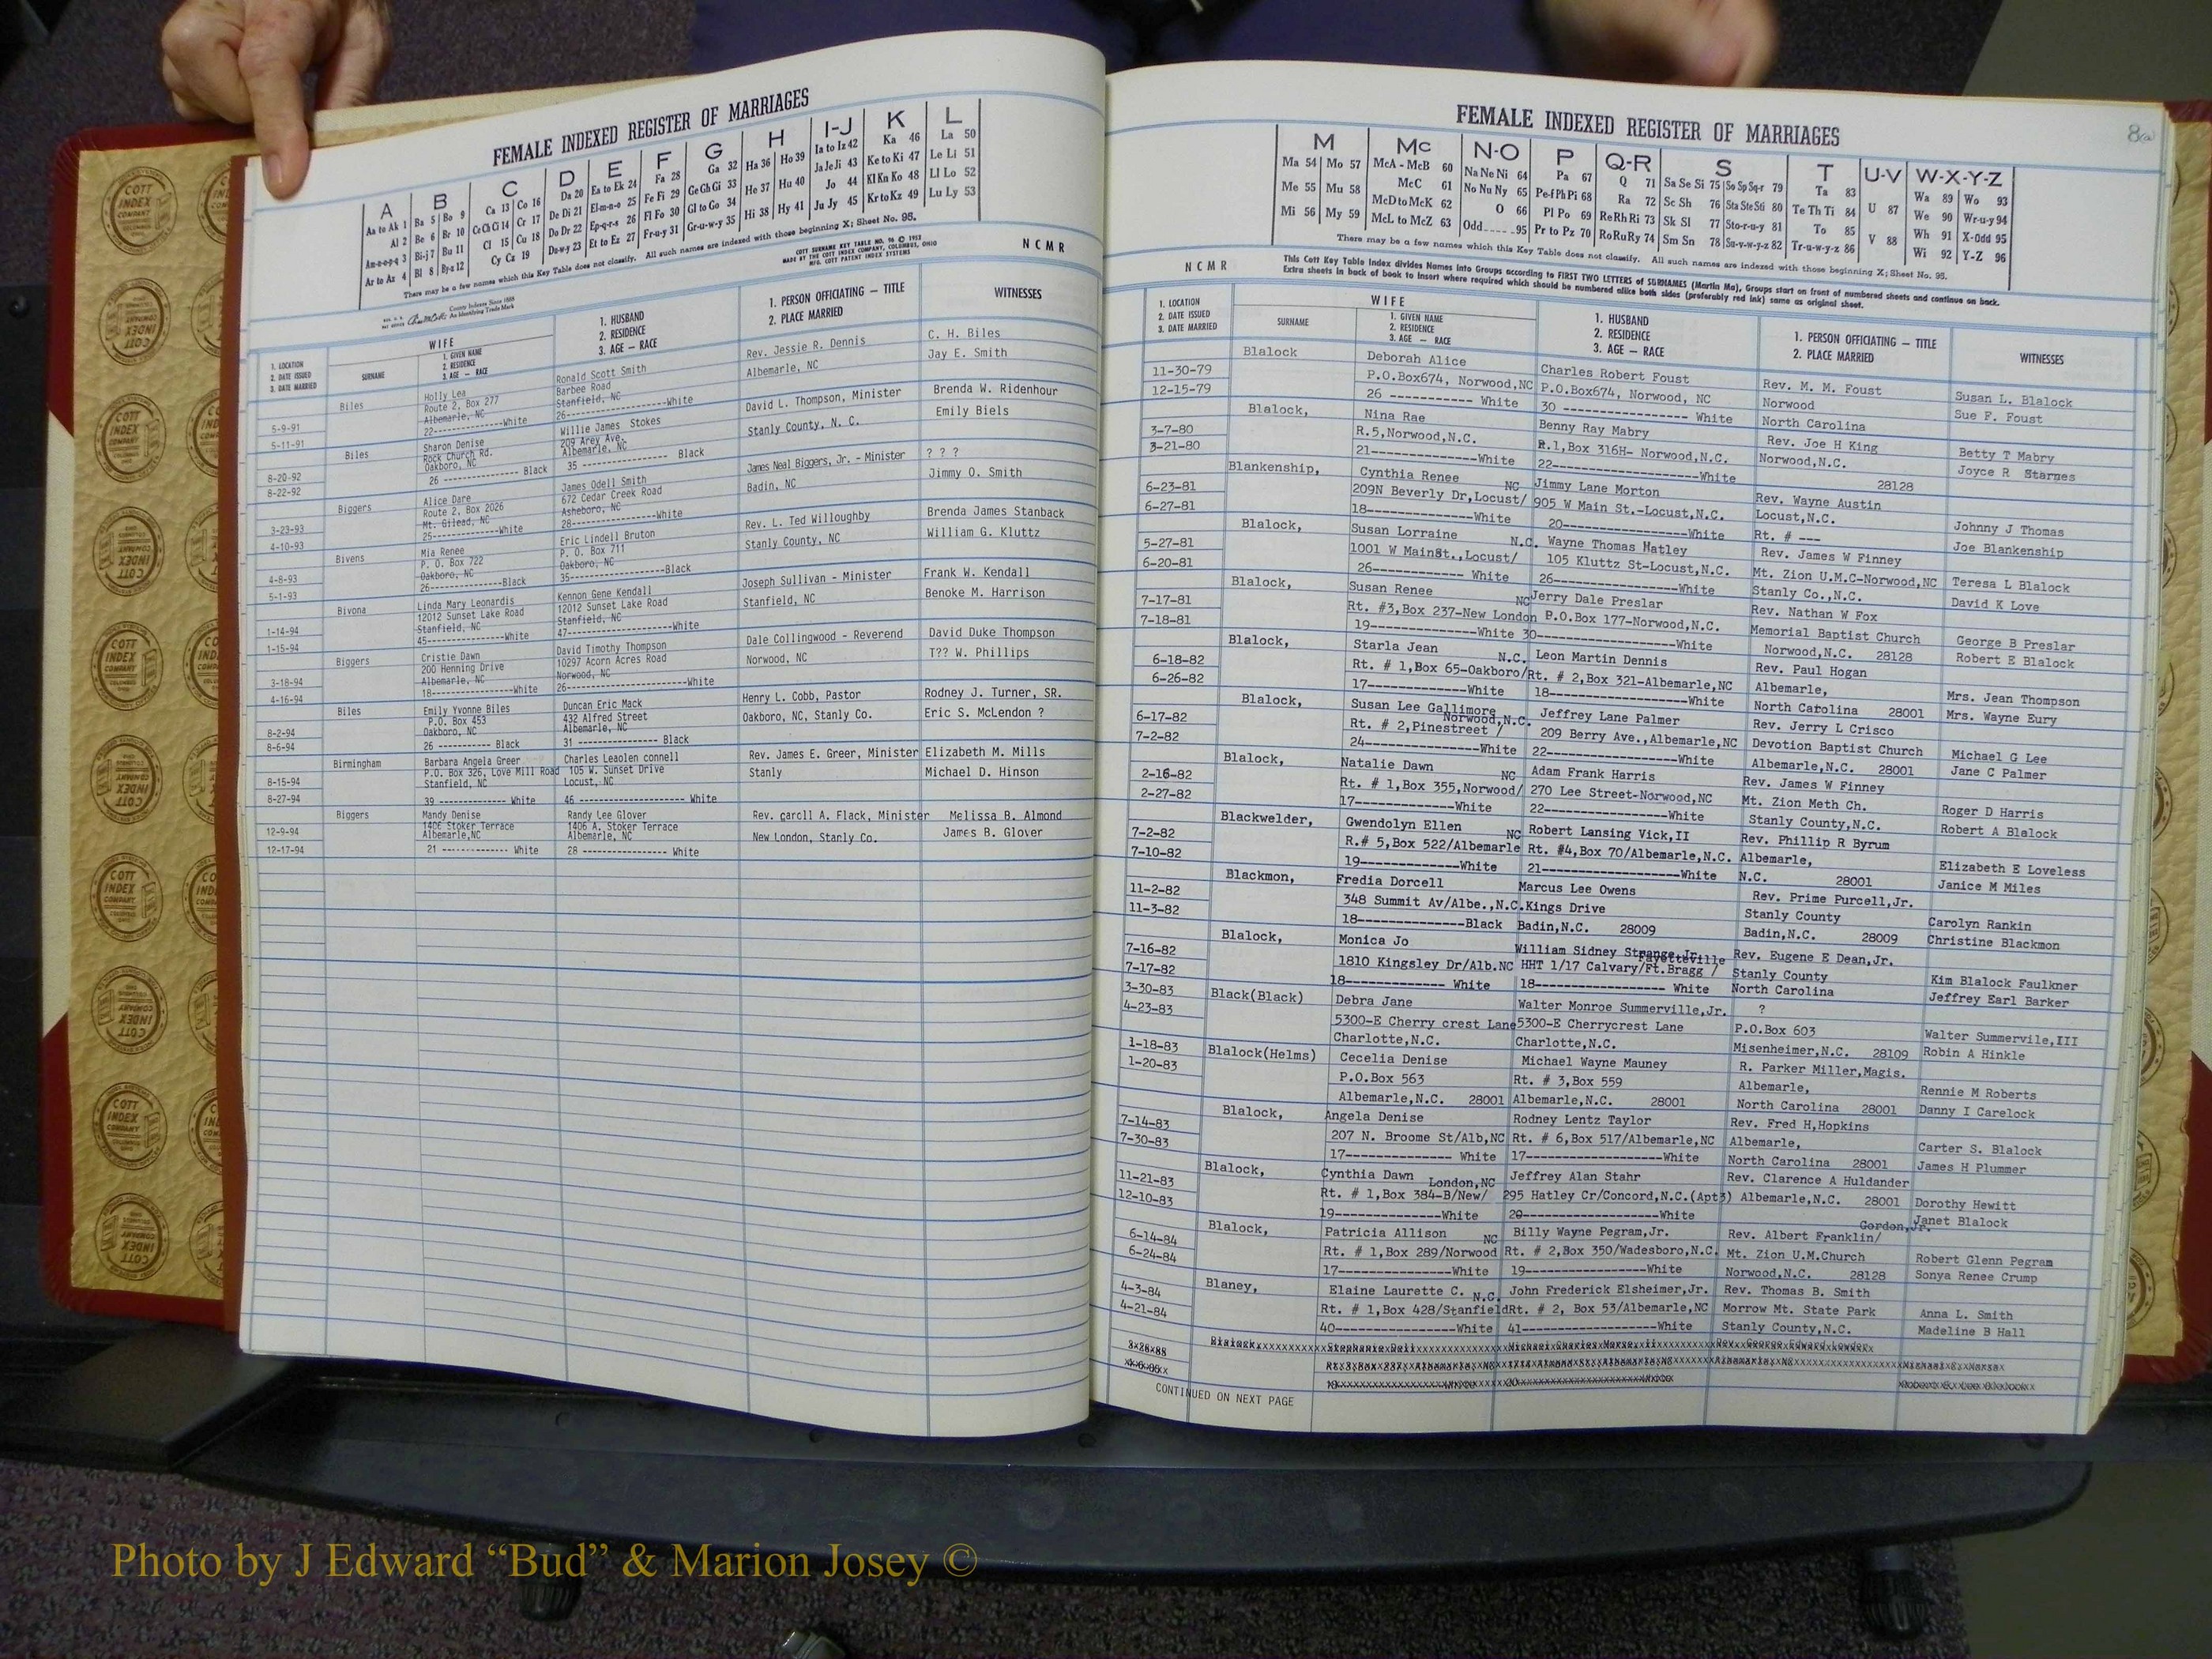 FEMALE INDEXED REGISTER OF MARRIAGES
A B C D E F G H I-J K L
Aa to Ak 1 Ba 5 Bo 9 Ca 13 Co 16 Da 20 Ea to Ek 24 Fa 28 Ga 32 Ha 36 Ho 39 Ia to Iz 42 Ka 46 La 50
Al 2 Be 6 Br 10 Ce Ch Ci 14 Cr 17 De Di 21 El-m-n-o 25 Fe Fi 29 Ge Gh Gi 33 He 37 Hu 40 Ja Je Ji 43 Ke to Ki 47 Le Li 51
Am-n-o-p-q 3 Bi-j 7 Bu 11 Cl 15 Cu 18 Do Dr 22 Ep-q-r-s 26 Fl Fo 30 Gl to Go 34 Hi 38 Hy 41 Jo 44 Kl Kn Ko 48 Ll Lo 52
Ar to Az 4 Bl 8 By-a 12 Cy Cz 19 Du-w-y 23 Et to Ez 27 Fr-u-y 31 Gr-u-w-y 35 Ju Jy 45 Kr to Kz 49 Lu Ly 53
There may be a few names which this Key Table does not classify. All such names are indexed with those beginning X; Sheet No. 95.
COTT SURNAME KEY TABLE NO. 96 © 1953
MADE BY THE COTT INDEX COMPANY, COLUMBUS, OHIO
MFG. COTT PATENT INDEX SYSTEMS
NCMR
County Indexes Since 1888
An Identifying Trade Mark
1. LOCATION
2. DATE ISSUED
3. DATE MARRIED
WIFE
SURNAME
1. GIVEN NAME
2. RESIDENCE
3. AGE — RACE
1. HUSBAND
2. RESIDENCE
3. AGE — RACE
1. PERSON OFFICIATING — TITLE
2. PLACE MARRIED
WITNESSES
Biles Holly Lea Ronald Scott Smith Rev. Jessie R. Dennis C. H. Biles
Route 2, Box 277 Barbee Road Albemarle, NC Jay E. Smith
5-9-91 Albemarle, NC Stanfield, NC
5-11-91 22---------------White 26---------------White
Biles Sharon Denise Willie James Stokes David L. Thompson, Minister Brenda W. Ridenhour
Rock Church Rd. 209 Arey Ave. Stanly County, N. C. Emily Biels
8-20-92 Oakboro, NC Albemarle, NC
8-22-92 26 ---------- Black 35 --------------- Black
Biggers Alice Dare James Odell Smith James Neal Biggers, Jr. - Minister ? ? ?
Route 2, Box 2026 672 Cedar Creek Road Badin, NC Jimmy O. Smith
3-23-93 Mt. Gilead, NC Asheboro, NC
4-10-93 25---------------White 28---------------White
Bivens Mia Renee Eric Lindell Bruton Rev. L. Ted Willoughby Brenda James Stanback
P. O. Box 722 P. O. Box 711 Stanly County, NC William G. Kluttz
4-8-93 Oakboro, NC Oakboro, NC
5-1-93 26---------------Black 35---------------Black
Bivona Linda Mary Leonardis Kennon Gene Kendall Joseph Sullivan - Minister Frank W. Kendall
12012 Sunset Lake Road 12012 Sunset Lake Road Stanfield, NC Benoke M. Harrison
1-14-94 Stanfield, NC Stanfield, NC
1-15-94 45---------------White 47---------------White
Biggers Cristie Dawn David Timothy Thompson Dale Collingwood - Reverend David Duke Thompson
200 Henning Drive 10297 Acorn Acres Road Norwood, NC T?? W. Phillips
3-18-94 Albemarle, NC Norwood, NC
4-16-94 18---------------White 26---------------White
Biles Emily Yvonne Biles Duncan Eric Mack Henry L. Cobb, Pastor Rodney J. Turner, SR.
P.O. Box 453 432 Alfred Street Oakboro, NC, Stanly Co. Eric S. McLendon ?
8-2-94 Oakboro, NC Albemarle, NC
8-6-94 26 ----------- Black 31 --------------- Black
Birmingham Barbara Angela Greer Charles Leaolen connell Rev. James E. Greer, Minister Elizabeth M. Mills
P.O. Box 326, Love Mill Road 105 W. Sunset Drive Stanly Michael D. Hinson
8-15-94 Stanfield, NC Locust, NC
8-27-94 39 --------------- White 46 --------------- White
Biggers Mandy Denise Randy Lee Glover Rev. carcll A. Flack, Minister Melissa B. Almond
12-9-94 1406 Stoker Terrace 1406 A. Stoker Terrace New London, Stanly Co. James B. Glover
Albemarle,NC Albemarle, NC
12-17-94 21 -------------- White 28 --------------- White
FEMALE INDEXED REGISTER OF MARRIAGES
8(a)
M Mc N-O P Q-R S T U-V W-X-Y-Z
Ma 54 Mo 57 McA - McB 60 Na Ne Ni 64 Pa 67 Q 71 Sa Se Si 75 So Sp Sq-r 79 Ta 83 U 87 Wa 89 Wo 93
Me 55 Mu 58 McC 61 No Nu Ny 65 Pe-f Ph Pi 68 Ra 72 Sc Sh 76 Sta Ste Sti 80 Te Th Ti 84 V 88 We 90 Wr-u-y 94
Mi 56 My 59 McD to McK 62 O 66 Pl Po 69 Re Rh Ri 73 Sk Sl 77 Sto-r-u-y 81 To 85 Wh 91 X-Odd 95
McL to McZ 63 Odd.....95 Pr to Pz 70 Ro Ru Ry 74 Sm Sn 78 Su-v-w-y-z 82 Tr-u-w-y-z 86 Wi 92 Y-Z 96
There may be a few names which this Key Table does not classify. All such names are indexed with those beginning X; Sheet No. 95.
NCMR
This Cott Key Table Index divides Names into Groups according to FIRST TWO LETTERS of SURNAMES (Martin Ma), Groups start on front of numbered sheets and continue on back.
Extra sheets in back of book to insert where required which should be numbered alike both sides (preferably red ink) same as original sheet.
1. LOCATION
2. DATE ISSUED
3. DATE MARRIED
WIFE
SURNAME
1. GIVEN NAME
2. RESIDENCE
3. AGE — RACE
1. HUSBAND
2. RESIDENCE
3. AGE — RACE
1. PERSON OFFICIATING — TITLE
2. PLACE MARRIED
WITNESSES
Blalock Deborah Alice Charles Robert Foust Rev. M. M. Foust
11-30-79 P.O.Box674, Norwood,NC P.O.Box674, Norwood, NC Norwood Susan L. Blalock
12-15-79 26 ----------- White 30 ---------------- White North Carolina Sue F. Foust
Blalock, Nina Rae Benny Ray Mabry Rev. Joe H King
3-7-80 R.5,Norwood,N.C. R.1,Box 316H- Norwood,N.C. Norwood,N.C. Betty T Mabry
3-21-80 21---------------White 22------------------White 28128 Joyce R Starnes
Blankenship, Cynthia Renee NC Jimmy Lane Morton Rev. Wayne Austin
6-23-81 209N Beverly Dr,Locust/ 905 W Main St.-Locust,N.C. Locust,N.C. Johnny J Thomas
6-27-81 18--------------White 20------------------White Rt. # --- Joe Blankenship
Blalock, Susan Lorraine N.C. Wayne Thomas Hatley Rev. James W Finney
5-27-81 1001 W MainSt.,Locust/ 105 Kluttz St-Locust,N.C. Mt. Zion U.M.C-Norwood,NC Teresa L Blalock
6-20-81 26------------ White 26-----------------White Stanly Co.,N.C. David K Love
Blalock, Susan Renee NC Jerry Dale Preslar Rev. Nathan W Fox
7-17-81 Rt. #3,Box 237-New London P.O.Box 177-Norwood,N.C. Memorial Baptist Church George B Preslar
7-18-81 19--------------White 30------------------White Norwood,N.C. 28128 Robert E Blalock
Blalock, Starla Jean N.C. Leon Martin Dennis Rev. Paul Hogan
6-18-82 Rt. # 1,Box 65-Oakboro/ Rt. # 2,Box 321-Albemarle,NC Albemarle, Mrs. Jean Thompson
6-26-82 17--------------White 18-----------------White North Carolina 28001 Mrs. Wayne Eury
Blalock, Susan Lee Gallimore Norwood,N.C. Jeffrey Lane Palmer Rev. Jerry L Crisco
6-17-82 Rt. # 2,Pinestreet / 209 Berry Ave.,Albemarle,NC Devotion Baptist Church Michael G Lee
7-2-82 24--------------White 22-----------------White Albemarle,N.C. 28001 Jane C Palmer
Blalock, Natalie Dawn NC Adam Frank Harris Rev. James W Finney
2-16-82 Rt. # 1,Box 355,Norwood/ 270 Lee Street-Norwood,NC Mt. Zion Meth Ch. Roger D Harris
2-27-82 17--------------White 22-----------------White Stanly County,N.C. Robert A Blalock
Blackwelder, Gwendolyn Ellen NC Robert Lansing Vick,II Rev. Phillip R Byrum
7-2-82 R.# 5,Box 522/Albemarle Rt. #4,Box 70/Albemarle,N.C. Albemarle, Elizabeth E Loveless
7-10-82 19--------------White 21------------------White N.C. 28001 Janice M Miles
Blackmon, Fredia Dorcell Marcus Lee Owens Rev. Prime Purcell,Jr.
11-2-82 348 Summit Av/Albe.,N.C. Kings Drive Stanly County Carolyn Rankin
11-3-82 18---------------Black Badin,N.C. 28009 Badin,N.C. 28009 Christine Blackmon
Blalock, Monica Jo William Sidney Strange,Jr. Fayetteville Rev. Eugene E Dean,Jr.
7-16-82 1810 Kingsley Dr/Alb.NC HHT 1/17 Calvary/Ft.Bragg / Stanly County Kim Blalock Faulkner
7-17-82 18------------- White 18----------------- White North Carolina Jeffrey Earl Barker
3-30-83 Black(Black) Debra Jane Walter Monroe Summerville,Jr. ?
4-23-83 5300-E Cherry crest Lane 5300-E Cherrycrest Lane P.O.Box 603 Walter Summervile,III
Charlotte,N.C. Charlotte,N.C. Misenheimer,N.C. 28109 Robin A Hinkle
1-18-83 Blalock(Helms) Cecelia Denise Michael Wayne Mauney R. Parker Miller,Magis.
1-20-83 P.O.Box 563 Rt. # 3,Box 559 Albemarle, Rennie M Roberts
Albemarle,N.C. 28001 Albemarle,N.C. 28001 North Carolina 28001 Danny I Carelock
Blalock, Angela Denise Rodney Lentz Taylor Rev. Fred H,Hopkins
7-14-83 207 N. Broome St/Alb,NC Rt. # 6,Box 517/Albemarle,NC Albemarle, Carter S. Blalock
7-30-83 17--------------- White 17-------------------White North Carolina 28001 James H Plummer
Blalock, Cynthia Dawn London,NC Jeffrey Alan Stahr Rev. Clarence A Huldander
11-21-83 Rt. # 1,Box 384-B/New/ 295 Hatley Cr/Concord,N.C.(Apt3) Albemarle,N.C. 28001 Dorothy Hewitt
12-10-83 19---------------White 20-------------------White Janet Blalock
Blalock, Patricia Allison NC Billy Wayne Pegram,Jr. Rev. Albert Franklin/ Gordon,Jr.
6-14-84 Rt. # 1,Box 289/Norwood Rt. # 2,Box 350/Wadesboro,N.C. Mt. Zion U.M.Church Robert Glenn Pegram
6-24-84 17----------------White 19------------------White Norwood,N.C. 28128 Sonya Renee Crump
Blaney, Elaine Laurette C. N.C. John Frederick Elsheimer,Jr. Rev. Thomas B. Smith
4-3-84 Rt. # 1,Box 428/Stanfield Rt. # 2, Box 53/Albemarle,NC Morrow Mt. State Park Anna L. Smith
4-21-84 40-----------------White 41--------------------White Stanly County,N.C. Madeline B Hall
CONTINUED ON NEXT PAGE
COTT INDEX COMPANY
Photo by J Edward “Bud” & Marion Josey ©